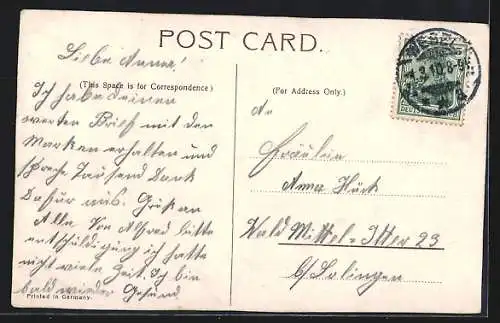 POST CARD.
Liebe Anna!
(This Space is for Correspondence.)
Ich habe deinen
werten Brief mit den
Marken erhalten und
spreche Tausend Dank
Dafür aus. Gruß an
Alle. Von Alfred bitte
entschuldigung ich hatte
nicht viele Zeit. Ich bin
bald wieder Gesund
Printed in Germany.
(For Address Only.)
An
Fräulein
Anna Hück
Wald Mittel=Itter 23
b/Solingen